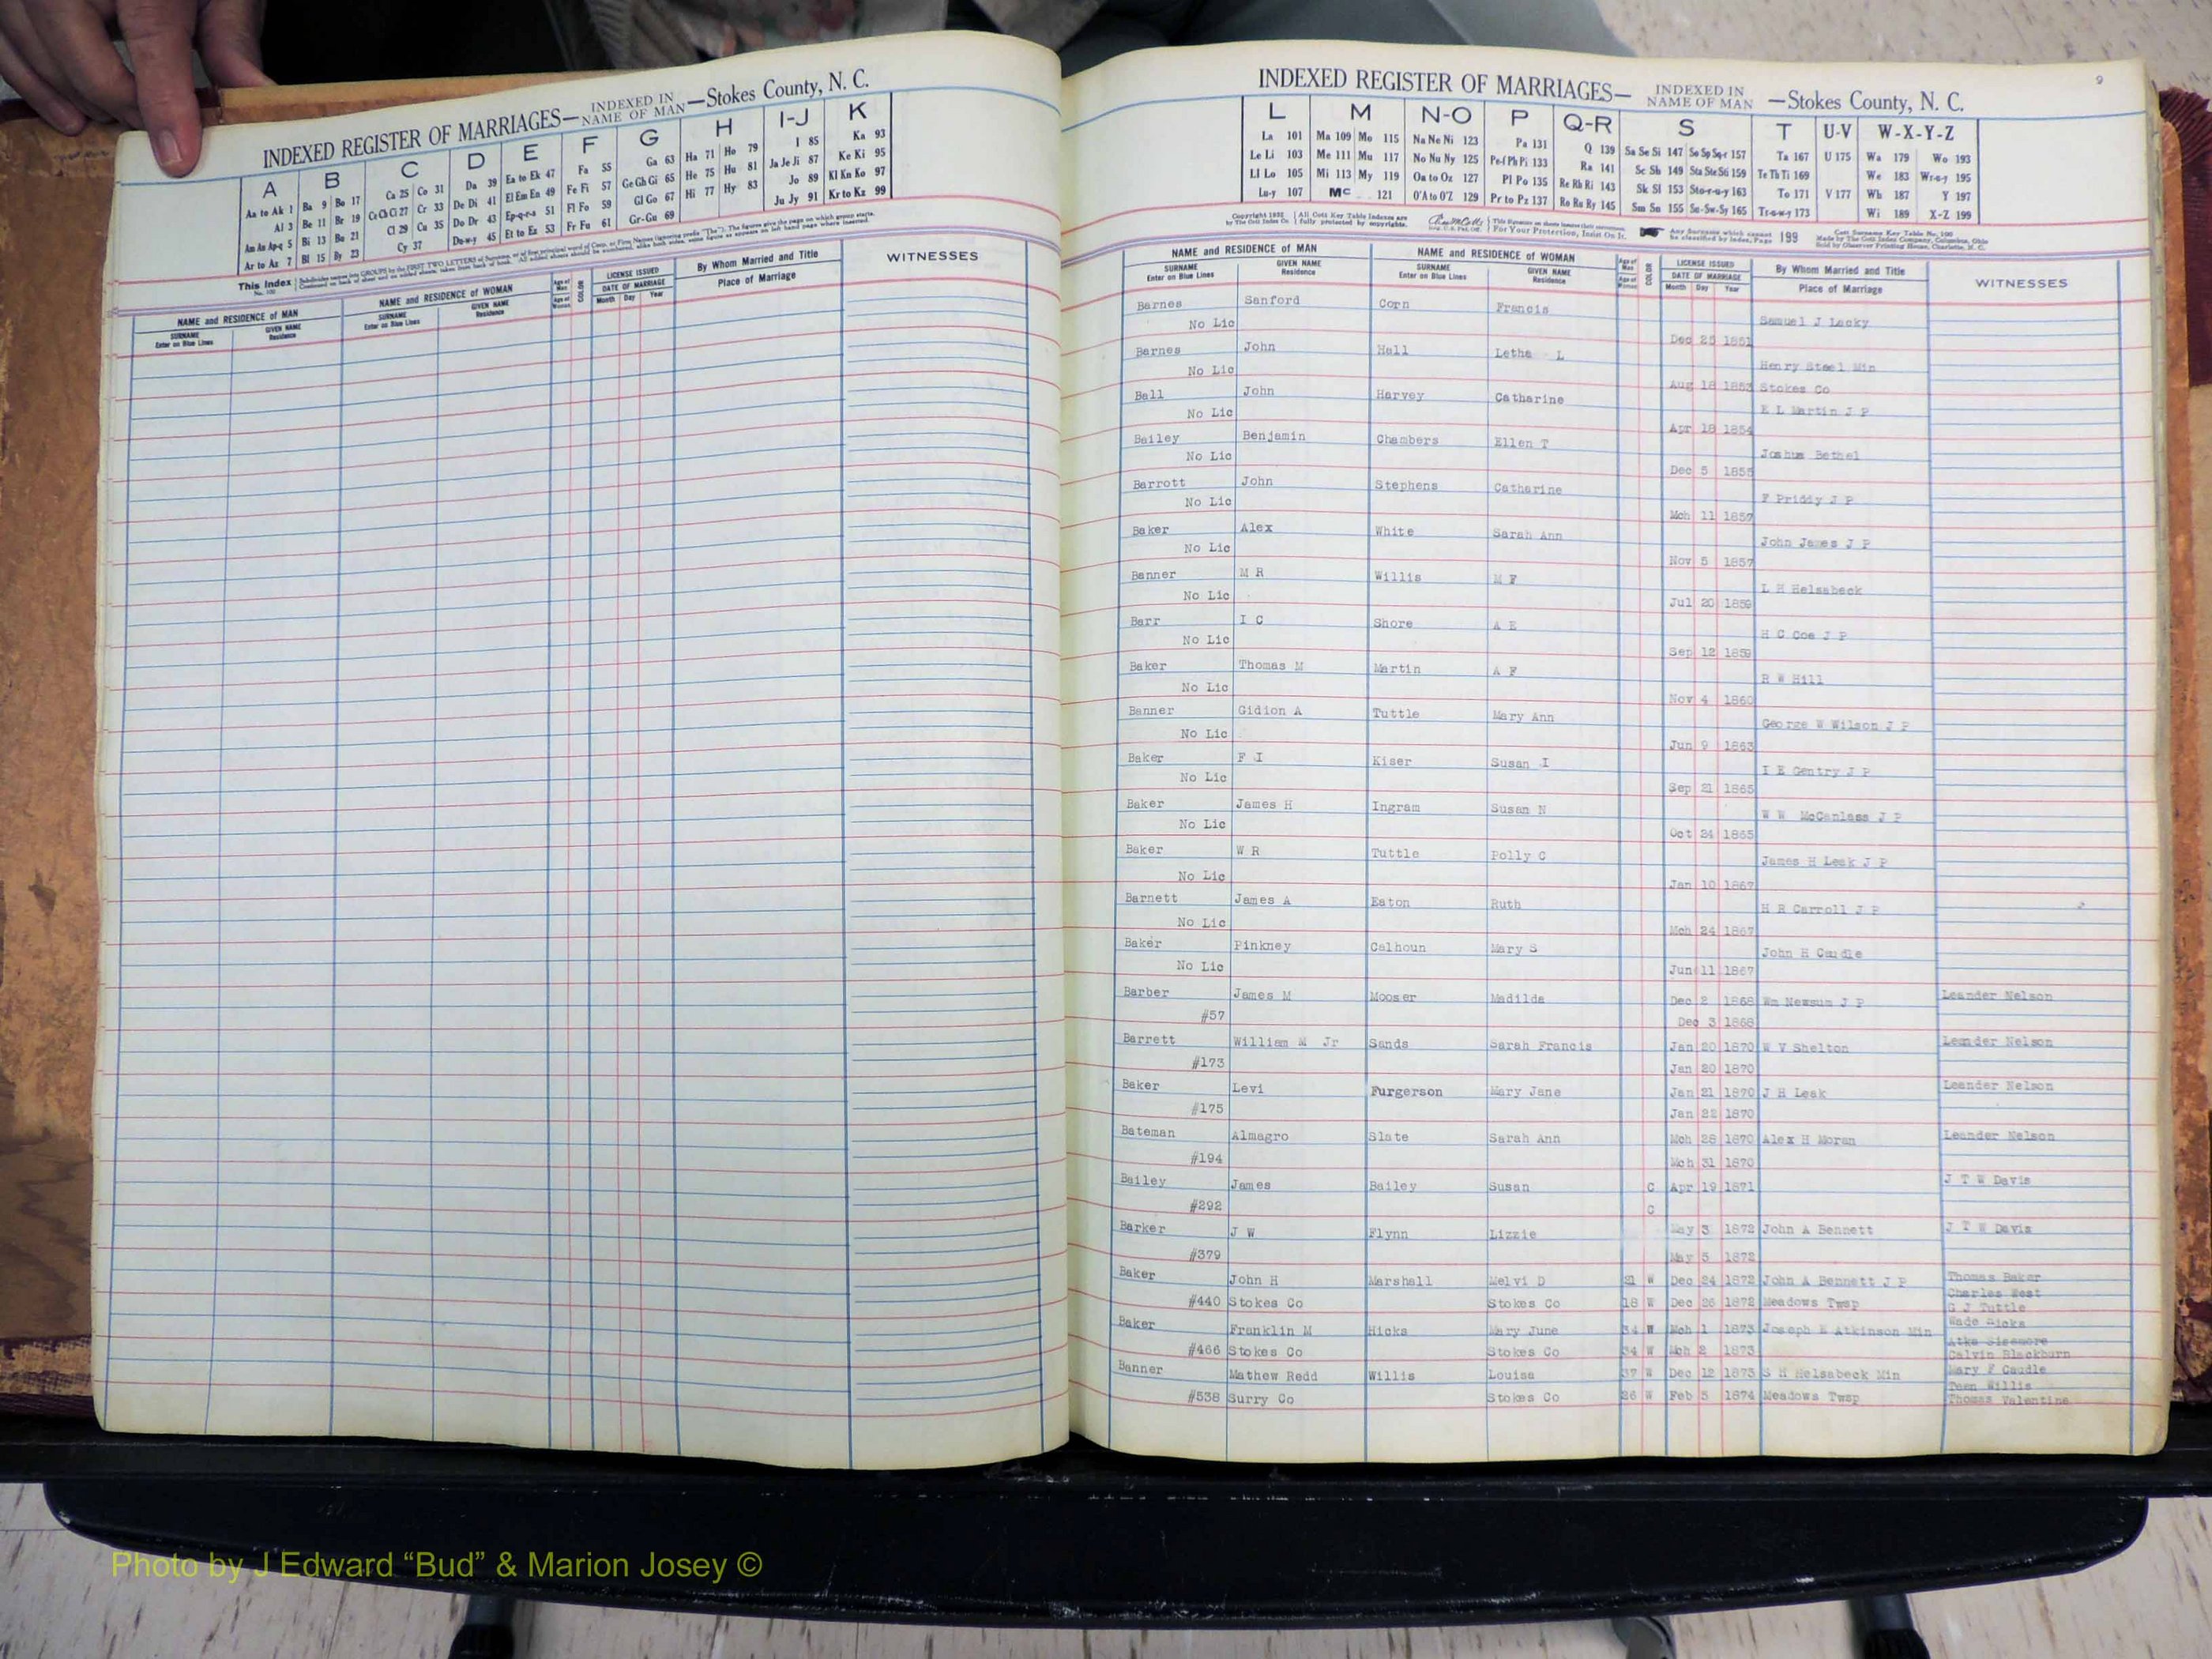 INDEXED REGISTER OF MARRIAGES— INDEXED IN NAME OF MAN —Stokes County, N. C.
A B C D E F G H I-J K
Aa to Ak 1 Ba 9 Bo 17 Ca 25 Co 31 Da 39 Ea to Ek 47 Fa 55 Ga 63 Ha 71 Ho 79 I 85 Ka 93
Al 3 Be 11 Br 19 Ce Ch Ci 27 Cr 33 De Di 41 El Em En 49 Fe Fi 57 Ge Gh Gi 65 He 75 Hu 81 Ja Je Ji 87 Ke Ki 95
Am An Ap-q 5 Bi 13 Bu 21 Cl 29 Cu 35 Do Dr 43 Ep-q-r-s 51 Fl Fo 59 Gl Go 67 Hi 77 Hy 83 Jo 89 Kl Kn Ko 97
Ar to Az 7 Bl 15 By 23 Cy 37 Du-w-y 45 Et to Ez 53 Fr Fu 61 Gr-Gu 69 Ju Jy 91 Kr to Kz 99
This Index
NAME and RESIDENCE of MAN NAME and RESIDENCE of WOMAN Age of Man Age of Woman COLOR LICENSE ISSUED DATE OF MARRIAGE By Whom Married and Title Place of Marriage WITNESSES
SURNAME Enter on Blue Lines GIVEN NAME Residence SURNAME Enter on Blue Lines GIVEN NAME Residence Month Day Year
9
INDEXED REGISTER OF MARRIAGES— INDEXED IN NAME OF MAN —Stokes County, N. C.
L M N-O P Q-R S T U-V W-X-Y-Z
La 101 Ma 109 Mo 115 Na Ne Ni 123 Pa 131 Q 139 Sa Se Si 147 So Sp Sq-r 157 Ta 167 U 175 Wa 179 Wo 193
Le Li 103 Me 111 Mu 117 No Nu Ny 125 Pe-f Ph Pi 133 Ra 141 Sc Sh 149 Sta Ste Sti 159 Te Th Ti 169 We 183 Wr-u-y 195
Ll Lo 105 Mi 113 My 119 Oa to Oz 127 Pl Po 135 Re Rh Ri 143 Sk Sl 153 Sto-r-u-y 163 To 171 V 177 Wh 187 Y 197
Lu-y 107 Mc 121 O'A to O'Z 129 Pr to Pz 137 Ro Ru Ry 145 Sm Sn 155 Su-Sw-Sy 165 Tr-u-w-y 173 Wi 189 X-Z 199
Any Surname which cannot be classified by Index, Page 199
NAME and RESIDENCE of MAN NAME and RESIDENCE of WOMAN Age of Man Age of Woman COLOR LICENSE ISSUED DATE OF MARRIAGE By Whom Married and Title Place of Marriage WITNESSES
SURNAME Enter on Blue Lines GIVEN NAME Residence SURNAME Enter on Blue Lines GIVEN NAME Residence Month Day Year
Barnes Sanford Corn Francis
No Lic Samuel J Lacky
Dec 25 1851
Barnes John Hall Letha L
No Lic Henry Steel Min
Aug 18 1853 Stokes Co
Ball John Harvey Catharine
No Lic E L Martin J P
Apr 18 1854
Bailey Benjamin Chambers Ellen T
No Lic Joshua Bethel
Dec 5 1855
Barrott John Stephens Catharine
No Lic F Priddy J P
Mch 11 1857
Baker Alex White Sarah Ann
No Lic John James J P
Nov 5 1857
Banner M R Willis M F
No Lic L H Helsabeck
Jul 20 1859
Barr I C Shore A E
No Lic H C Coe J P
Sep 12 1859
Baker Thomas M Martin A F
No Lic R W Hill
Nov 4 1860
Banner Gidion A Tuttle Mary Ann
No Lic George W Wilson J P
Jun 9 1863
Baker F I Kiser Susan I
No Lic I E Gentry J P
Sep 21 1865
Baker James H Ingram Susan N
No Lic W W McCanlass J P
Oct 24 1865
Baker W R Tuttle Polly C
No Lic James H Leak J P
Jan 10 1867
Barnett James A Eaton Ruth
No Lic H R Carroll J P
Mch 24 1867
Baker Pinkney Calhoun Mary S
No Lic John H Caudle
Jun 11 1867
Barber James M Mooser Madilda Dec 2 1868 Wm Newsum J P Leander Nelson
#57 Dec 3 1868
Barrett William M Jr Sands Sarah Francis Jan 20 1870 W V Shelton Leander Nelson
#173 Jan 20 1870
Baker Levi Furgerson Mary Jane Jan 21 1870 J H Leak Leander Nelson
#175 Jan 22 1870
Bateman Almagro Slate Sarah Ann Mch 28 1870 Alex H Moran Leander Nelson
#194 Mch 31 1870
Bailey James Bailey Susan C Apr 19 1871 J T W Davis
#292 C
Barker J W Flynn Lizzie May 3 1872 John A Bennett J T W Davis
#379 May 5 1872
Baker John H Marshall Melvi D 21 W Dec 24 1872 John A Bennett J P Thomas Baker
Charles West
#440 Stokes Co Stokes Co 18 W Dec 26 1872 Meadows Twsp G J Tuttle
Baker Franklin M Hicks Mary June 34 W Mch 1 1873 Joseph E Atkinson Min Wade Hicks
Atka Sisemore
#466 Stokes Co Stokes Co 34 W Mch 2 1873 Calvin Blackburn
Banner Mathew Redd Willis Louisa 37 W Dec 12 1873 S H Helsabeck Min Mary F Caudle
Teen Willis
#538 Surry Co Stokes Co 26 W Feb 5 1874 Meadows Twsp Thomas Valentine
Photo by J Edward “Bud” & Marion Josey ©